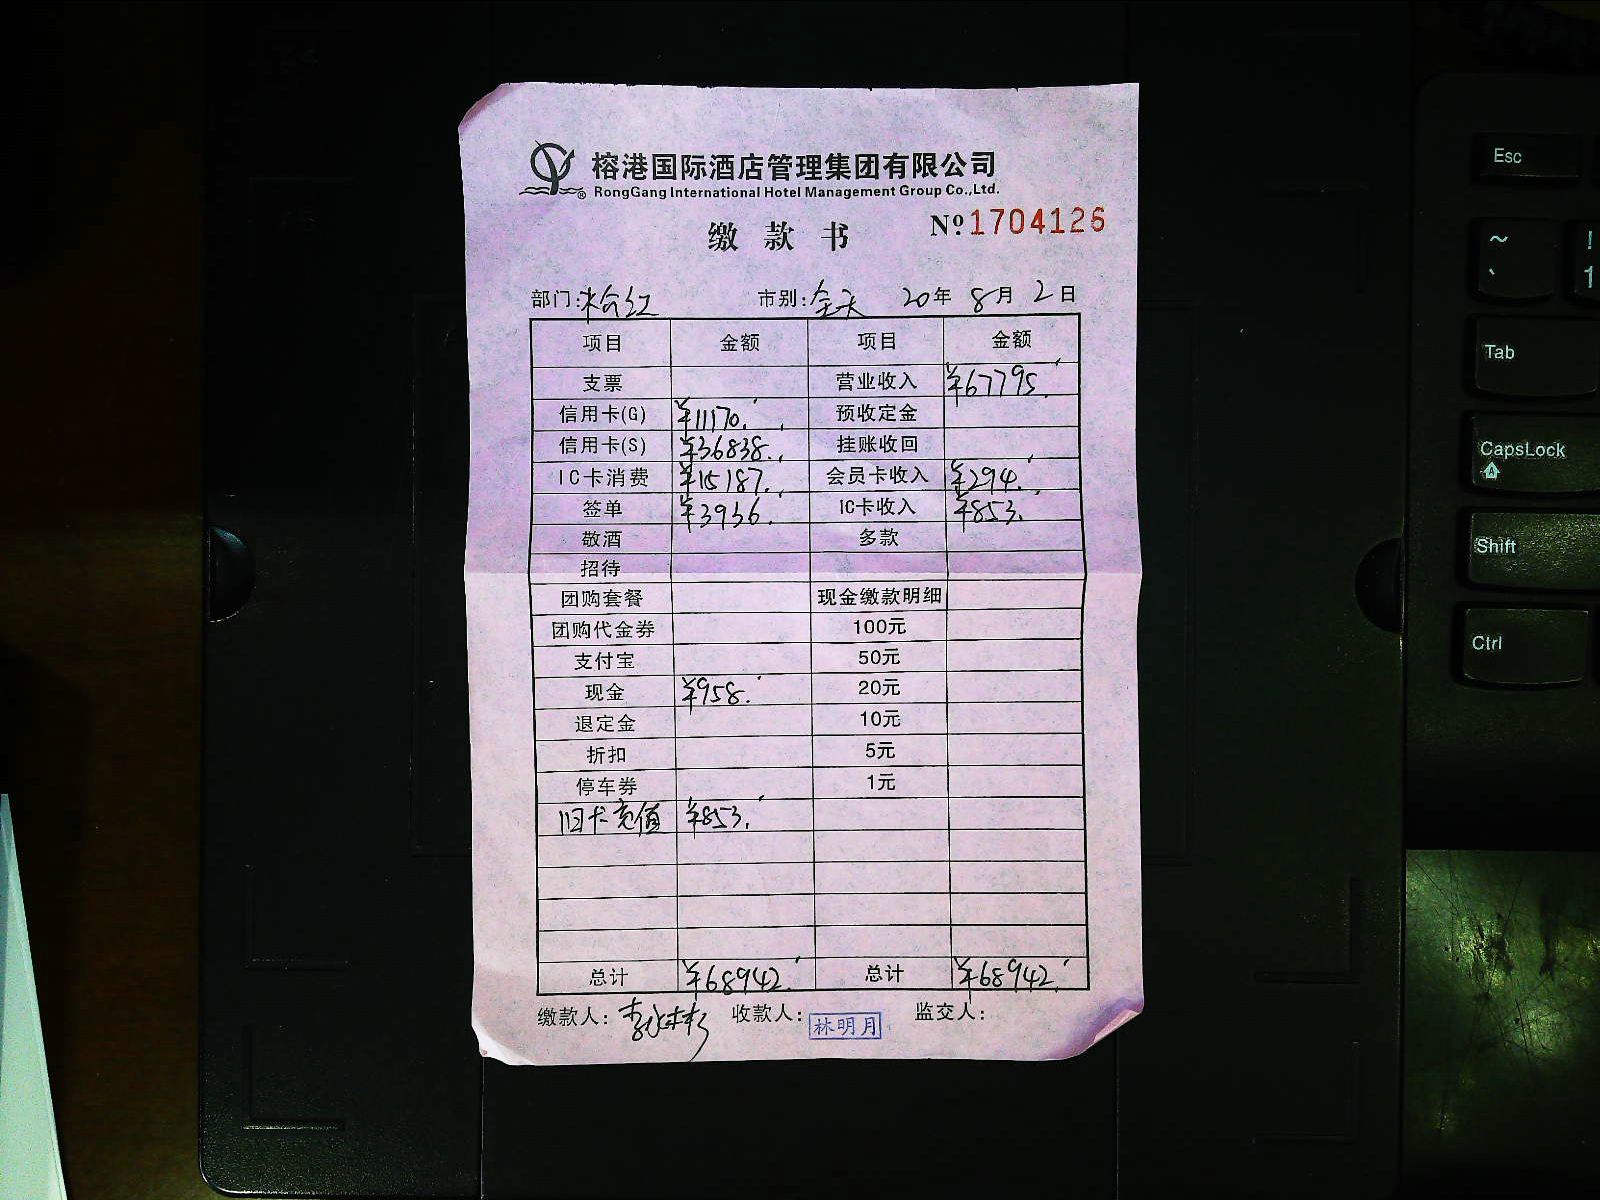 榕港国际酒店管理集团有限公司
RongGang International Hotel Management Group Co.,Ltd.
缴款书 №1704126
部门: 市别:全天 20年 8月 2日
项目 金额 项目 金额
支票 营业收入 ¥67795.
信用卡(G) ¥11170. 预收定金
信用卡(S) ¥36838. 挂账收回
IC卡消费 ¥15187. 会员卡收入 ¥294.
签单 ¥3936. IC卡收入 ¥853.
敬酒 多款
招待
团购套餐 现金缴款明细
团购代金券 100元
支付宝 50元
现金 ¥958. 20元
退定金 10元
折扣 5元
停车券 1元
旧卡充值 ¥853.
总计 ¥68942. 总计 ¥68942.
缴款人: 收款人:林明月 监交人:
Esc
~ !
` 1
Tab
CapsLock
A
Shift
Ctrl